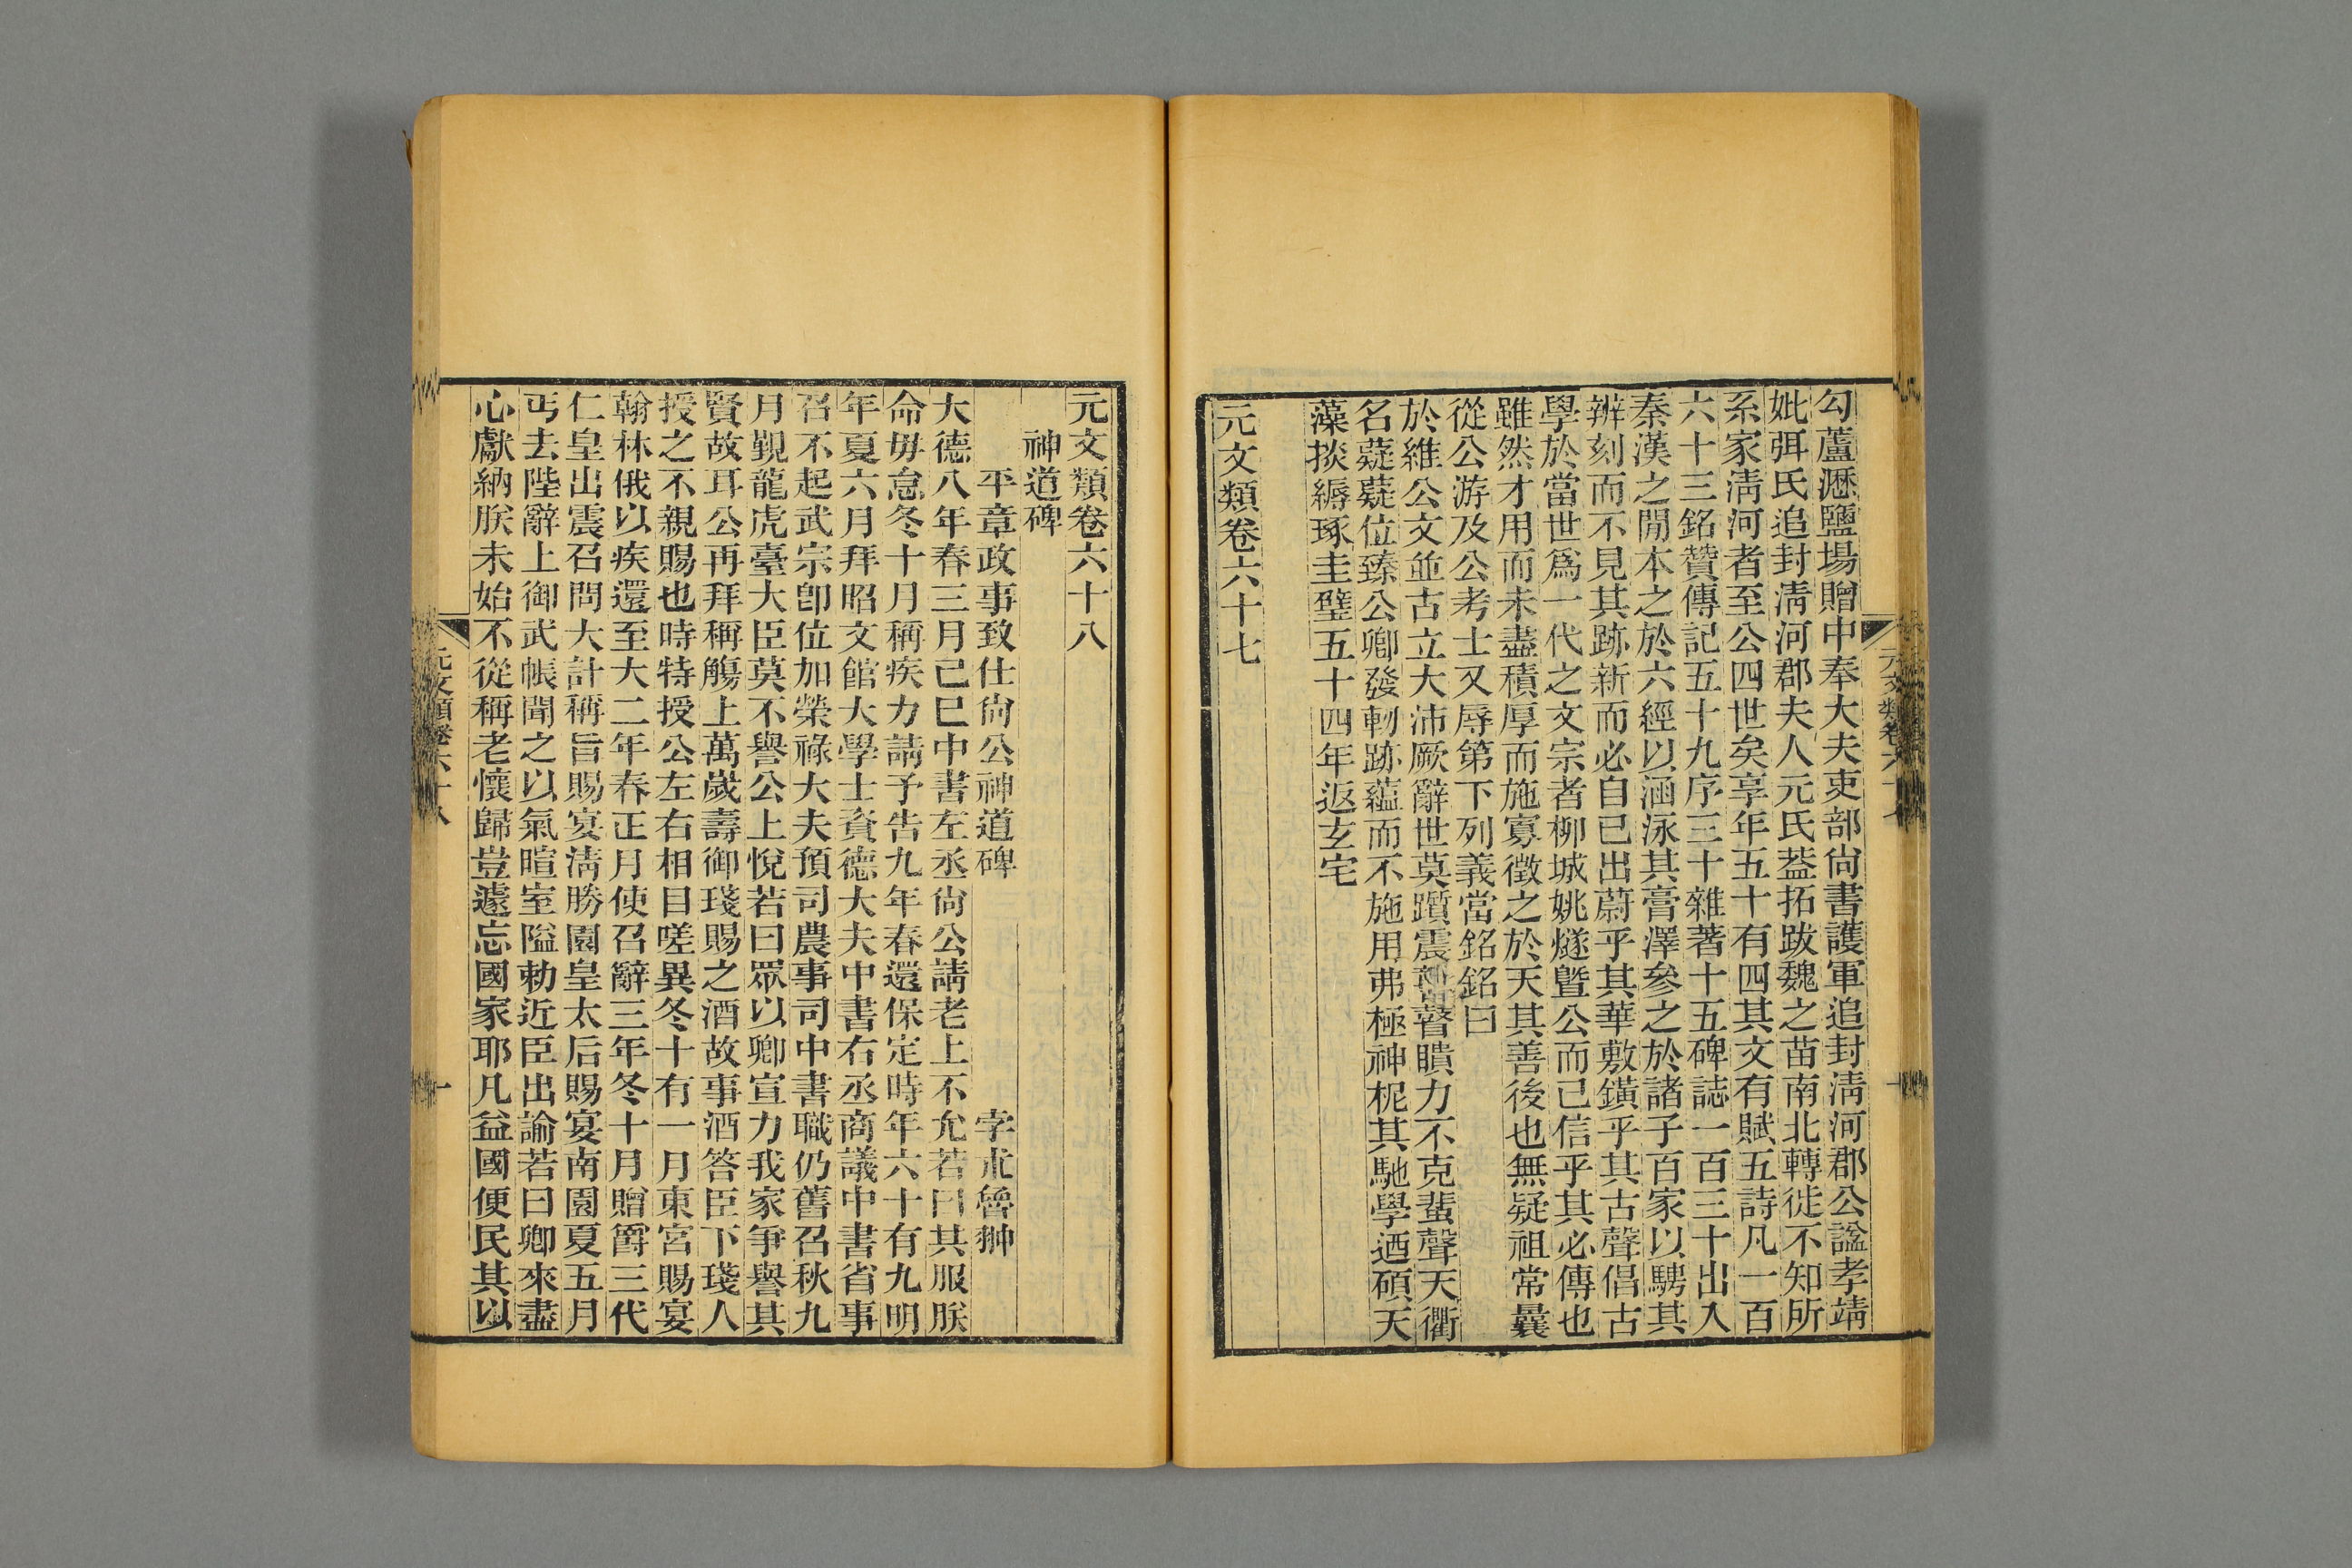 勾蘆瀝鹽場贈中奉大夫吏部尙書護軍追封淸河郡公諡孝靖
妣弭氏追封淸河郡夫人元氏葢拓跋魏之苗南北轉徙不知所
系家淸河者至公四世矣享年五十有四其文有賦五詩凡一百
六十三銘贊傳記五十九序三十雜著十五碑誌一百三十出入
秦漢之閒本之於六經以涵泳其膏澤參之於諸子百家以騁其
辨刻而不見其跡新而必自已出蔚乎其華敷鐄乎其古聲倡古
學於當世爲一代之文宗者柳城姚燧曁公而己信乎其必傳也
雖然才用而未盡積厚而施寡徵之於天其善後也無疑祖常曩
從公游及公考士又辱第下列義當銘銘曰
於維公文並古立大沛厥辭世莫躓震聾瞽瞶力不克蜚聲天衢
名薿薿位臻公卿發軔跡蘊而不施用弗極神柅其馳學迺碩天
藻掞縟琢圭璧五十四年返玄宅
元文類卷六十七
元文類卷六十八
神道碑
平章政事致仕尙公神道碑
孛朮魯翀
大德八年春三月己巳中書左丞尙公請老上不允若曰其服朕
命毋怠冬十月稱疾力請予告九年春還保定時年六十有九明
年夏六月拜昭文館大學士資德大夫中書右丞商議中書省事
召不起武宗卽位加榮祿大夫預司農事司中書職仍舊召秋九
月覲龍虎臺大臣莫不譽公上悅若曰眾以卿宣力我家爭譽其
賢故耳公再拜稱觴上萬歲壽御琖賜之酒故事酒答臣下琖人
授之不親賜也時特授公左右相目嗟異冬十有一月東宮賜宴
翰林俄以疾還至大二年春正月使召辭三年冬十月贈爵三代
仁皇出震召問大計稱旨賜宴淸勝園皇太后賜宴南園夏五月
丐去陛辭上御武帳聞之以氣暄室隘勅近臣出諭若曰卿來盡
心獻納朕未始不從稱老懷歸豈遽忘國家耶凡益國便民其以
元文類卷六十八
一